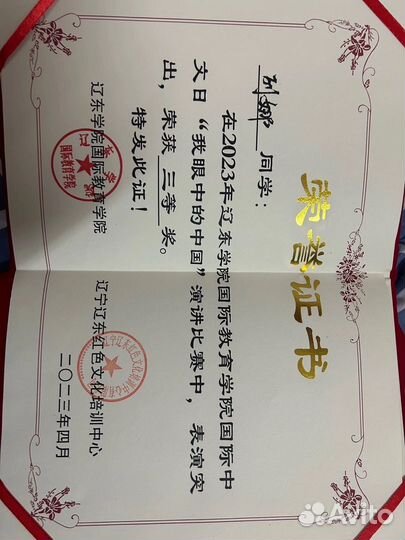 荣誉证书
刘娜 同学：
在2023年辽东学院国际教育学院国际中
文日“我眼中的中国”演讲比赛中，表演突
出，荣获 三等 奖。
特发此证！
辽东学院国际教育学院 辽宁辽东红色文化培训中心
国际教育学院
二〇二三年四月
Avito